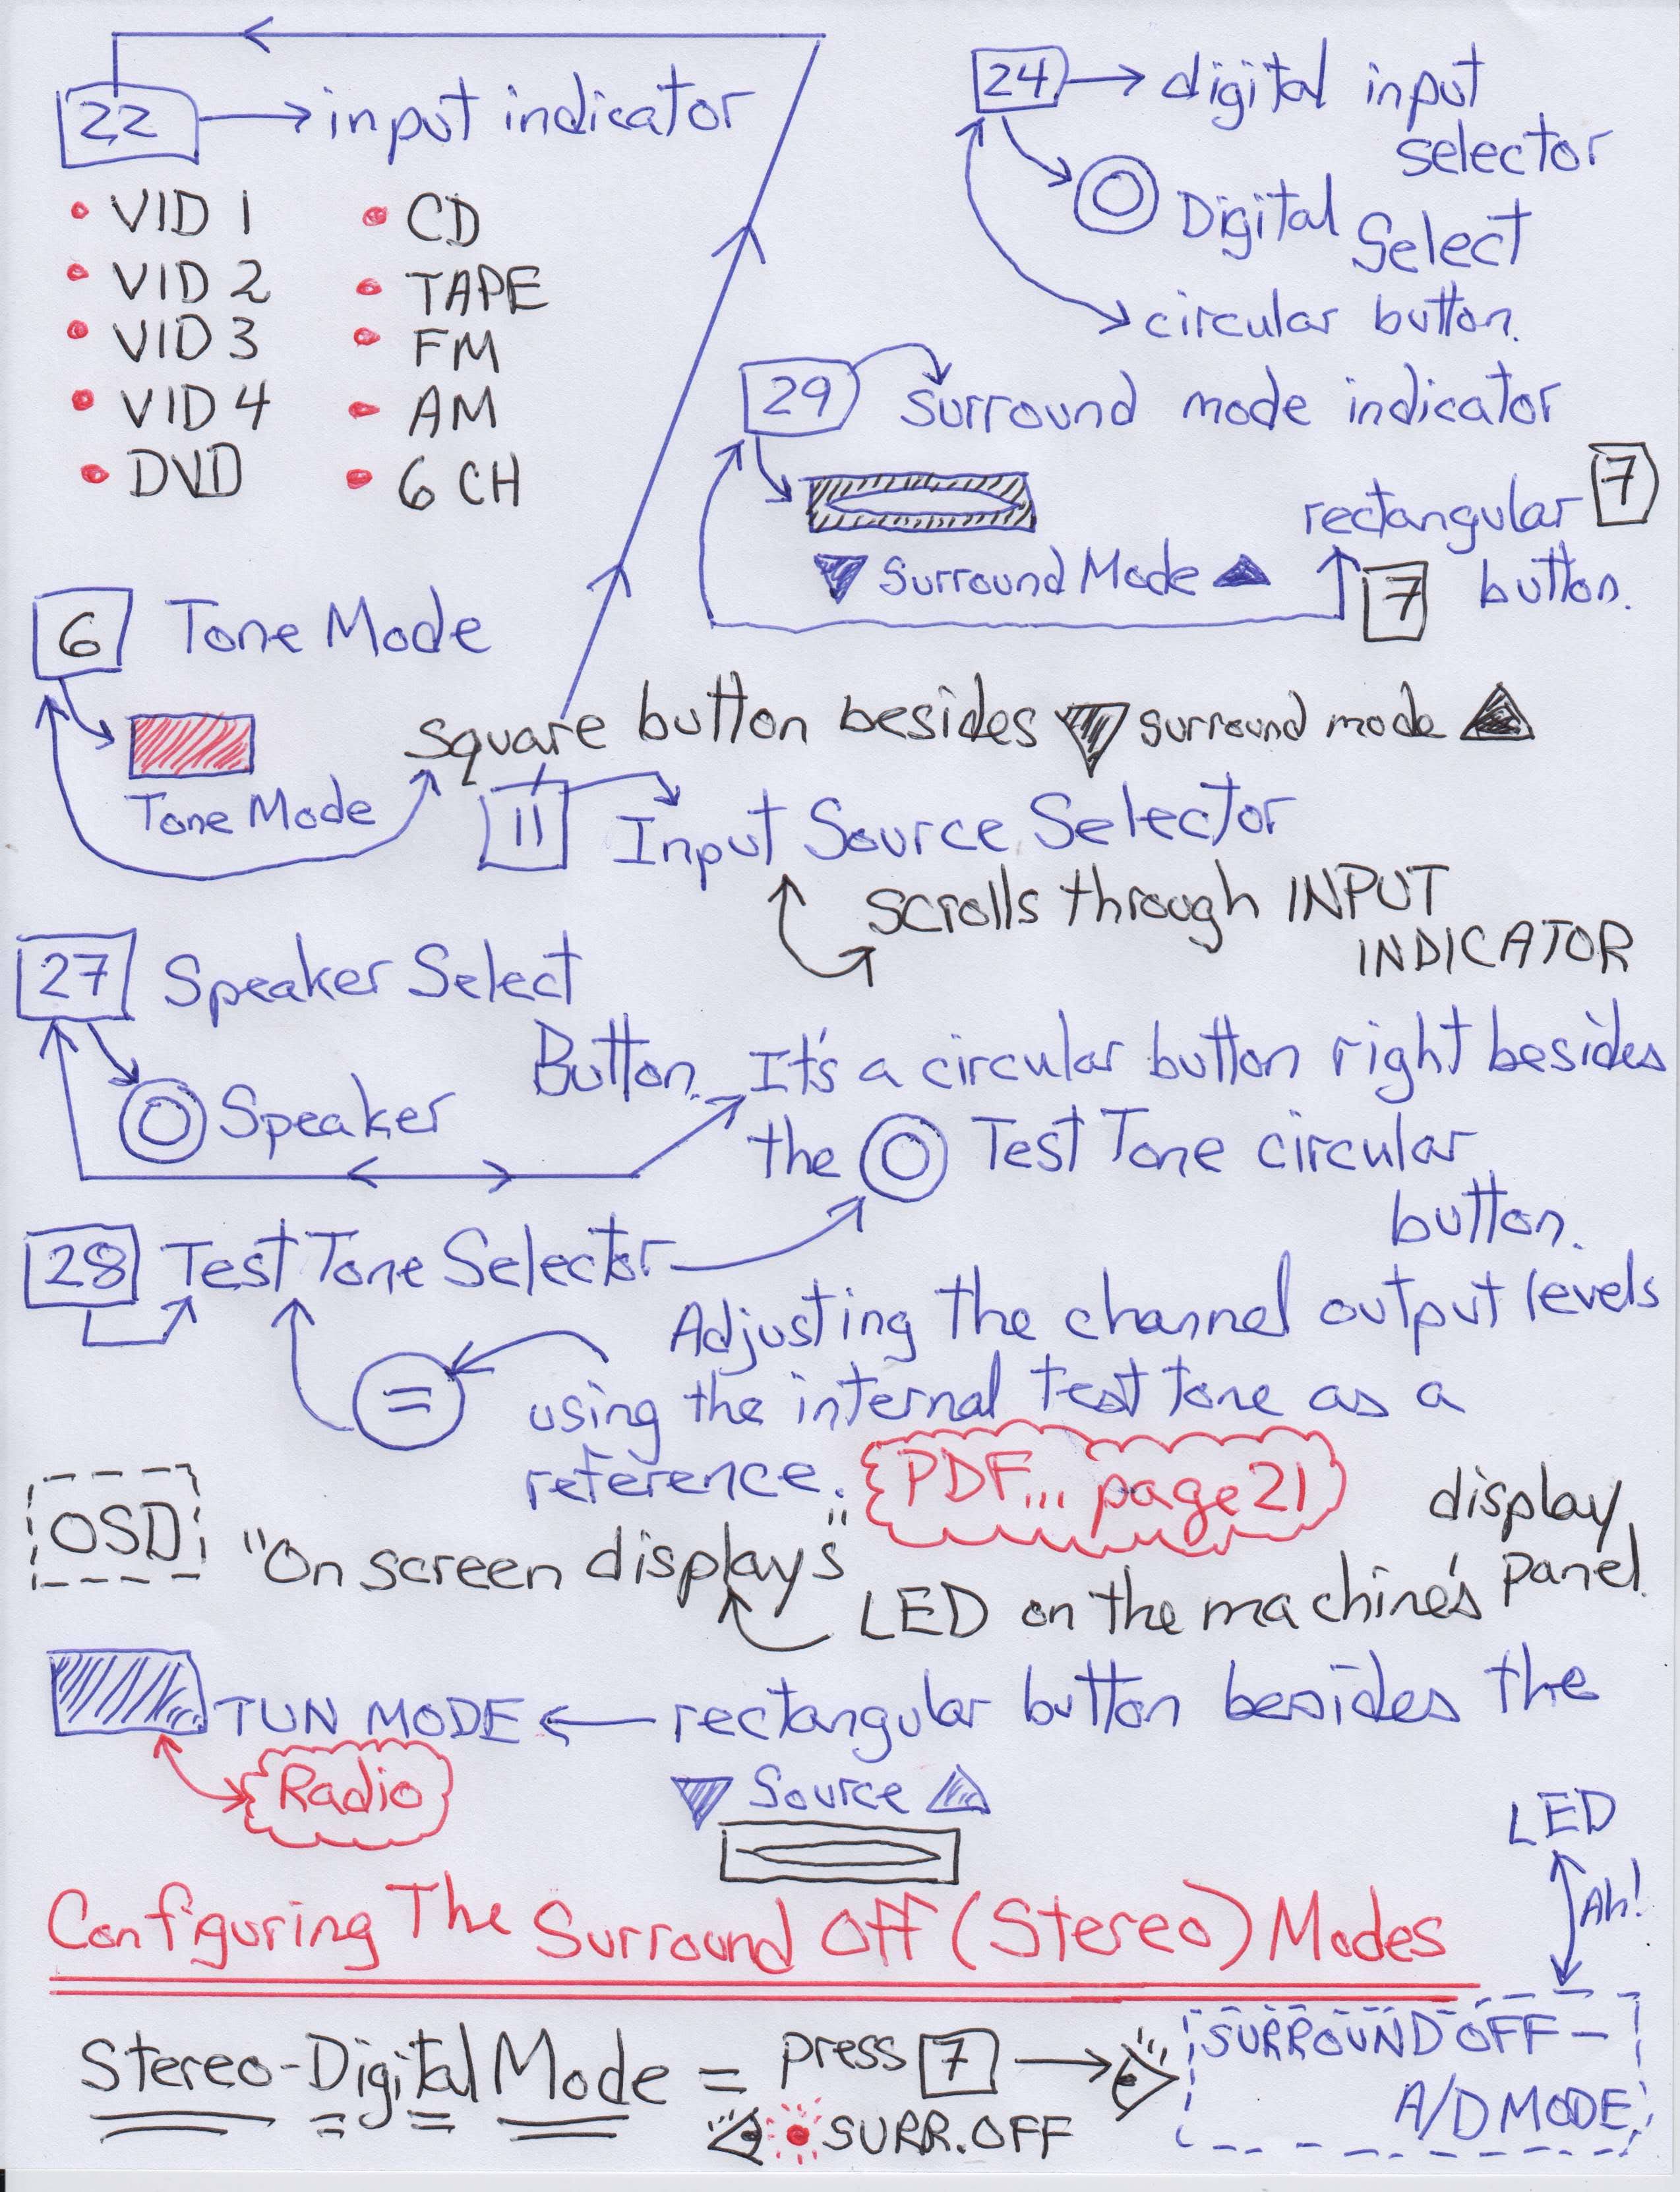 22 → input indicator
• VID 1
• VID 2
• VID 3
• VID 4
• DVD
• CD
• TAPE
• FM
• AM
• 6 CH
24 → digital input
selector
Digital Select
circular button.
29 Surround mode indicator
rectangular 7
7 button.
▼ Surround Mode ▲
6 Tone Mode
Tone Mode
square button besides ▼ surround mode ▲
11 Input Source Selector
scrolls through INPUT
INDICATOR
27 Speaker Select
Button. It's a circular button right besides
Speaker
the ◎ Test Tone circular
button.
28 Test Tone Selector
= Adjusting the channel output levels
using the internal test tone as a
reference.
PDF... page 21
OSD "On screen displays"
LED on the machine's display
panel.
TUN MODE ← rectangular button besides the
▼ Source ▲
Radio
LED
Ah!
Configuring The Surround Off (Stereo) Modes
Stereo-Digital Mode = press 7 →
SURR. OFF
SURROUND OFF –
A/D MODE